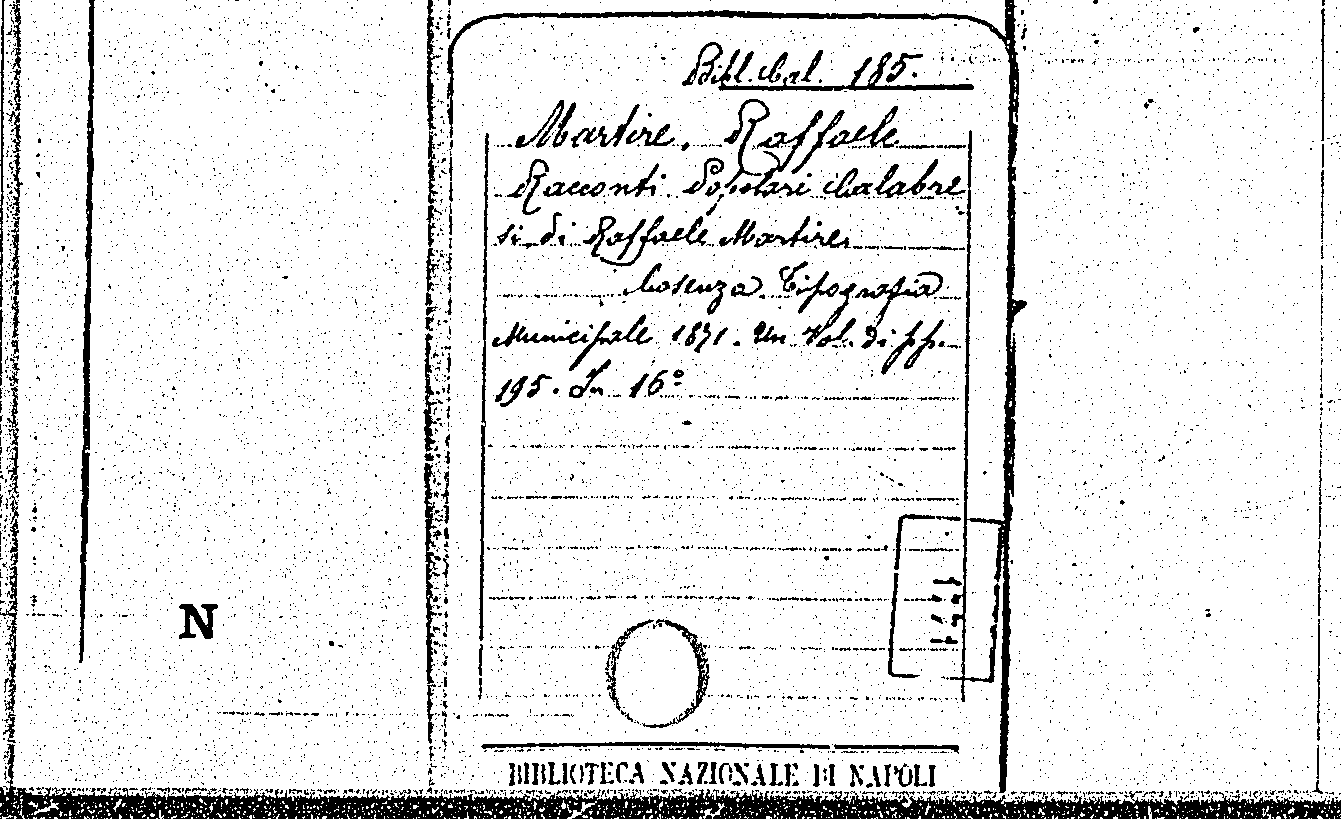 Bibl. Cal. 185.
Martire, Raffaele
Racconti Popolari Calabre
si di Raffaele Martire.
Cosenza. Tipografia
Municipale 1871. Un Vol. di pp.
195. In 16º
N
BIBLIOTECA NAZIONALE DI NAPOLI